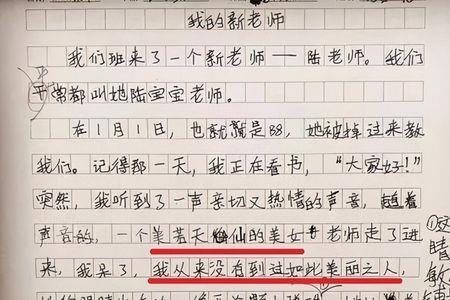 我的新老师
我们班来了一个新老师——陆老师。我们
平常都叫她陆宝宝老师。
在1月1日，也就是B8，她被掉过来教
我们。记得那一天，我正在看书，“大家好！”
突然，我听到了一声亲切又热情的声音，随着
声音的，一个美若天仙的美女老师走了进
来，我呆了，我从来没有到过如此美丽之人，
①这
睛
敏